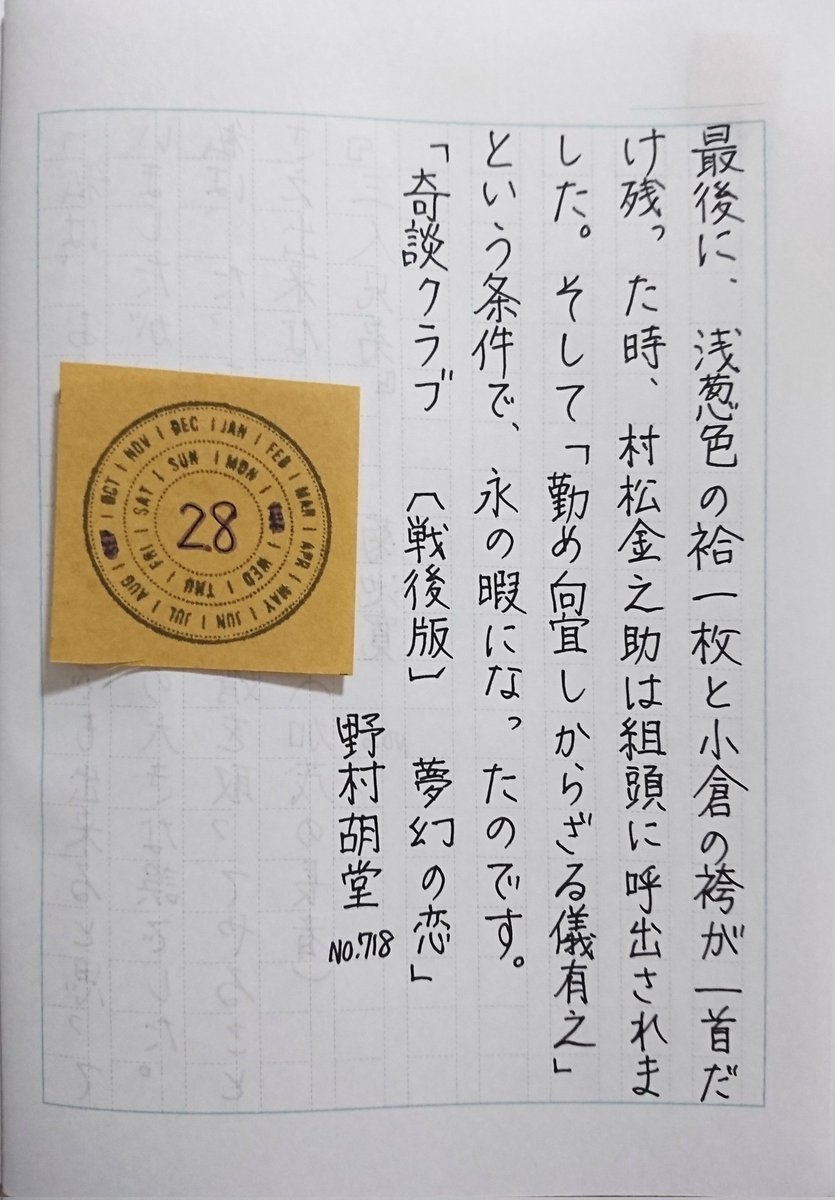 最後に、浅葱色の袷一枚と小倉の袴が一首だ
け残った時、村松金之助は組頭に呼出されま
した。そして「勤め向宜しからざる儀有之」
という条件で、永の暇になったのです。
「奇談クラブ〔戦後版〕 夢幻の恋」
野村胡堂
NO.718
JAN | FEB | MAR | APR | MAY | JUN | JUL | AUG | SEP | OCT | NOV | DEC
SUN | MON | WED | THU | FRI | SAT
28